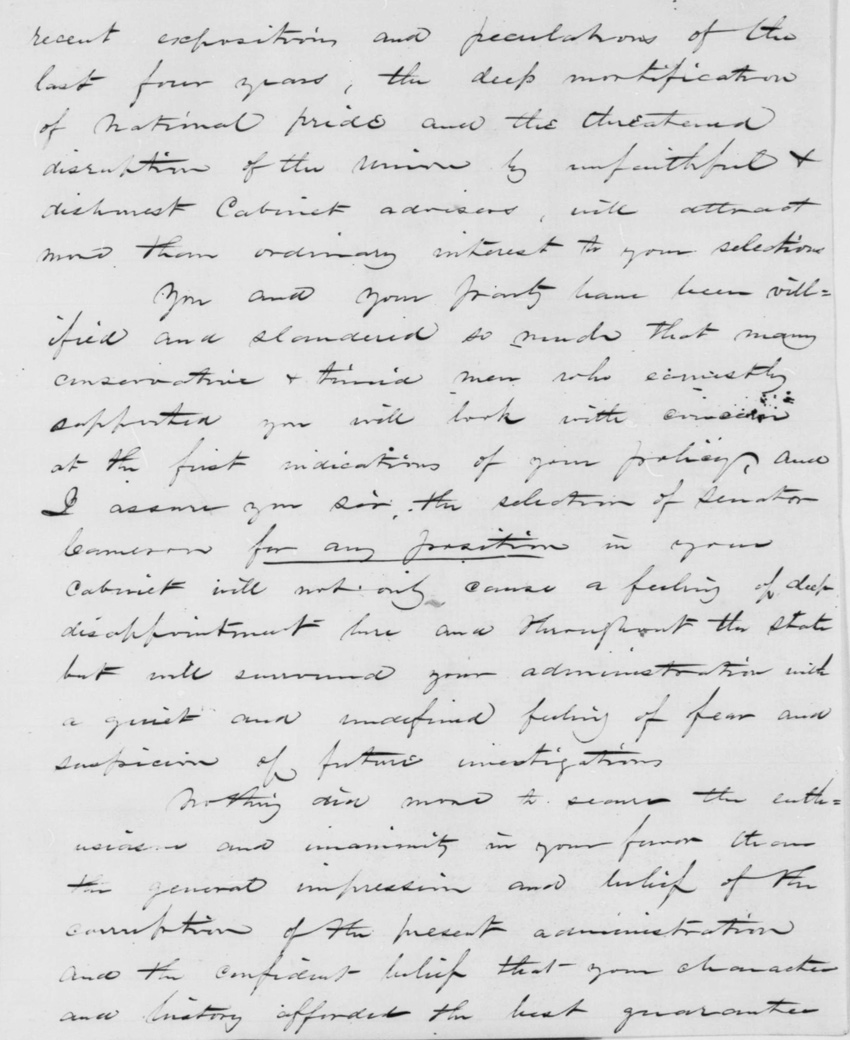 recent expositions and peculations of the
last four years, the deep mortification
of national pride and the threatened
disruption of the Union by unfaithful &
dishonest Cabinet advisors, will attract
more than ordinary interest to your selections
You and your party have been vill=
ified and slandered so much that many
conservative & timid men who earnestly
supported you will look with
at the first indications of your policy, and
I assure you sir, the selection of Senator
Cameron for any position in your
Cabinet will not only cause a feeling of deep
disappointment here and throughout the state
but will surround your administration with
a quiet and undefined feeling of fear and
suspicion of future investigations
Nothing did more to secure the enth=
usiasm and unanimity in your favor than
the general impression and belief of the
corruption of the present administration
and the confident belief that your character
and history afforded the best guarantee